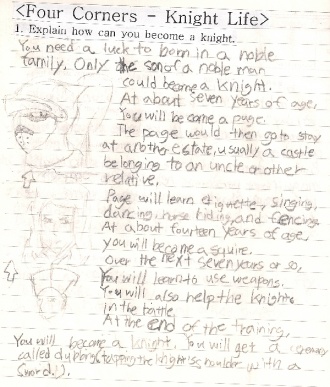 <Four Corners - Knight Life>
1. Explain how can you become a knight.
You need a luck to born in a noble
family. Only the son of a noble man
could become a knight.
At about seven years of age,
You will be come a page.
The page would then go to stay
at another estate, usually a castle
belonging to an uncle or other
relative.
Page will learn etiquette, singing,
dancing, horse riding, and fencing.
At about fourteen years of age,
you will become a squire.
Over the next seven years or so,
You will learn to use weapons.
You will also help the knights
in the battle.
At the end of the training,
You will become a knight. You will get a ceremony
called dubbing(tapping the knight's shoulder with a
sword).